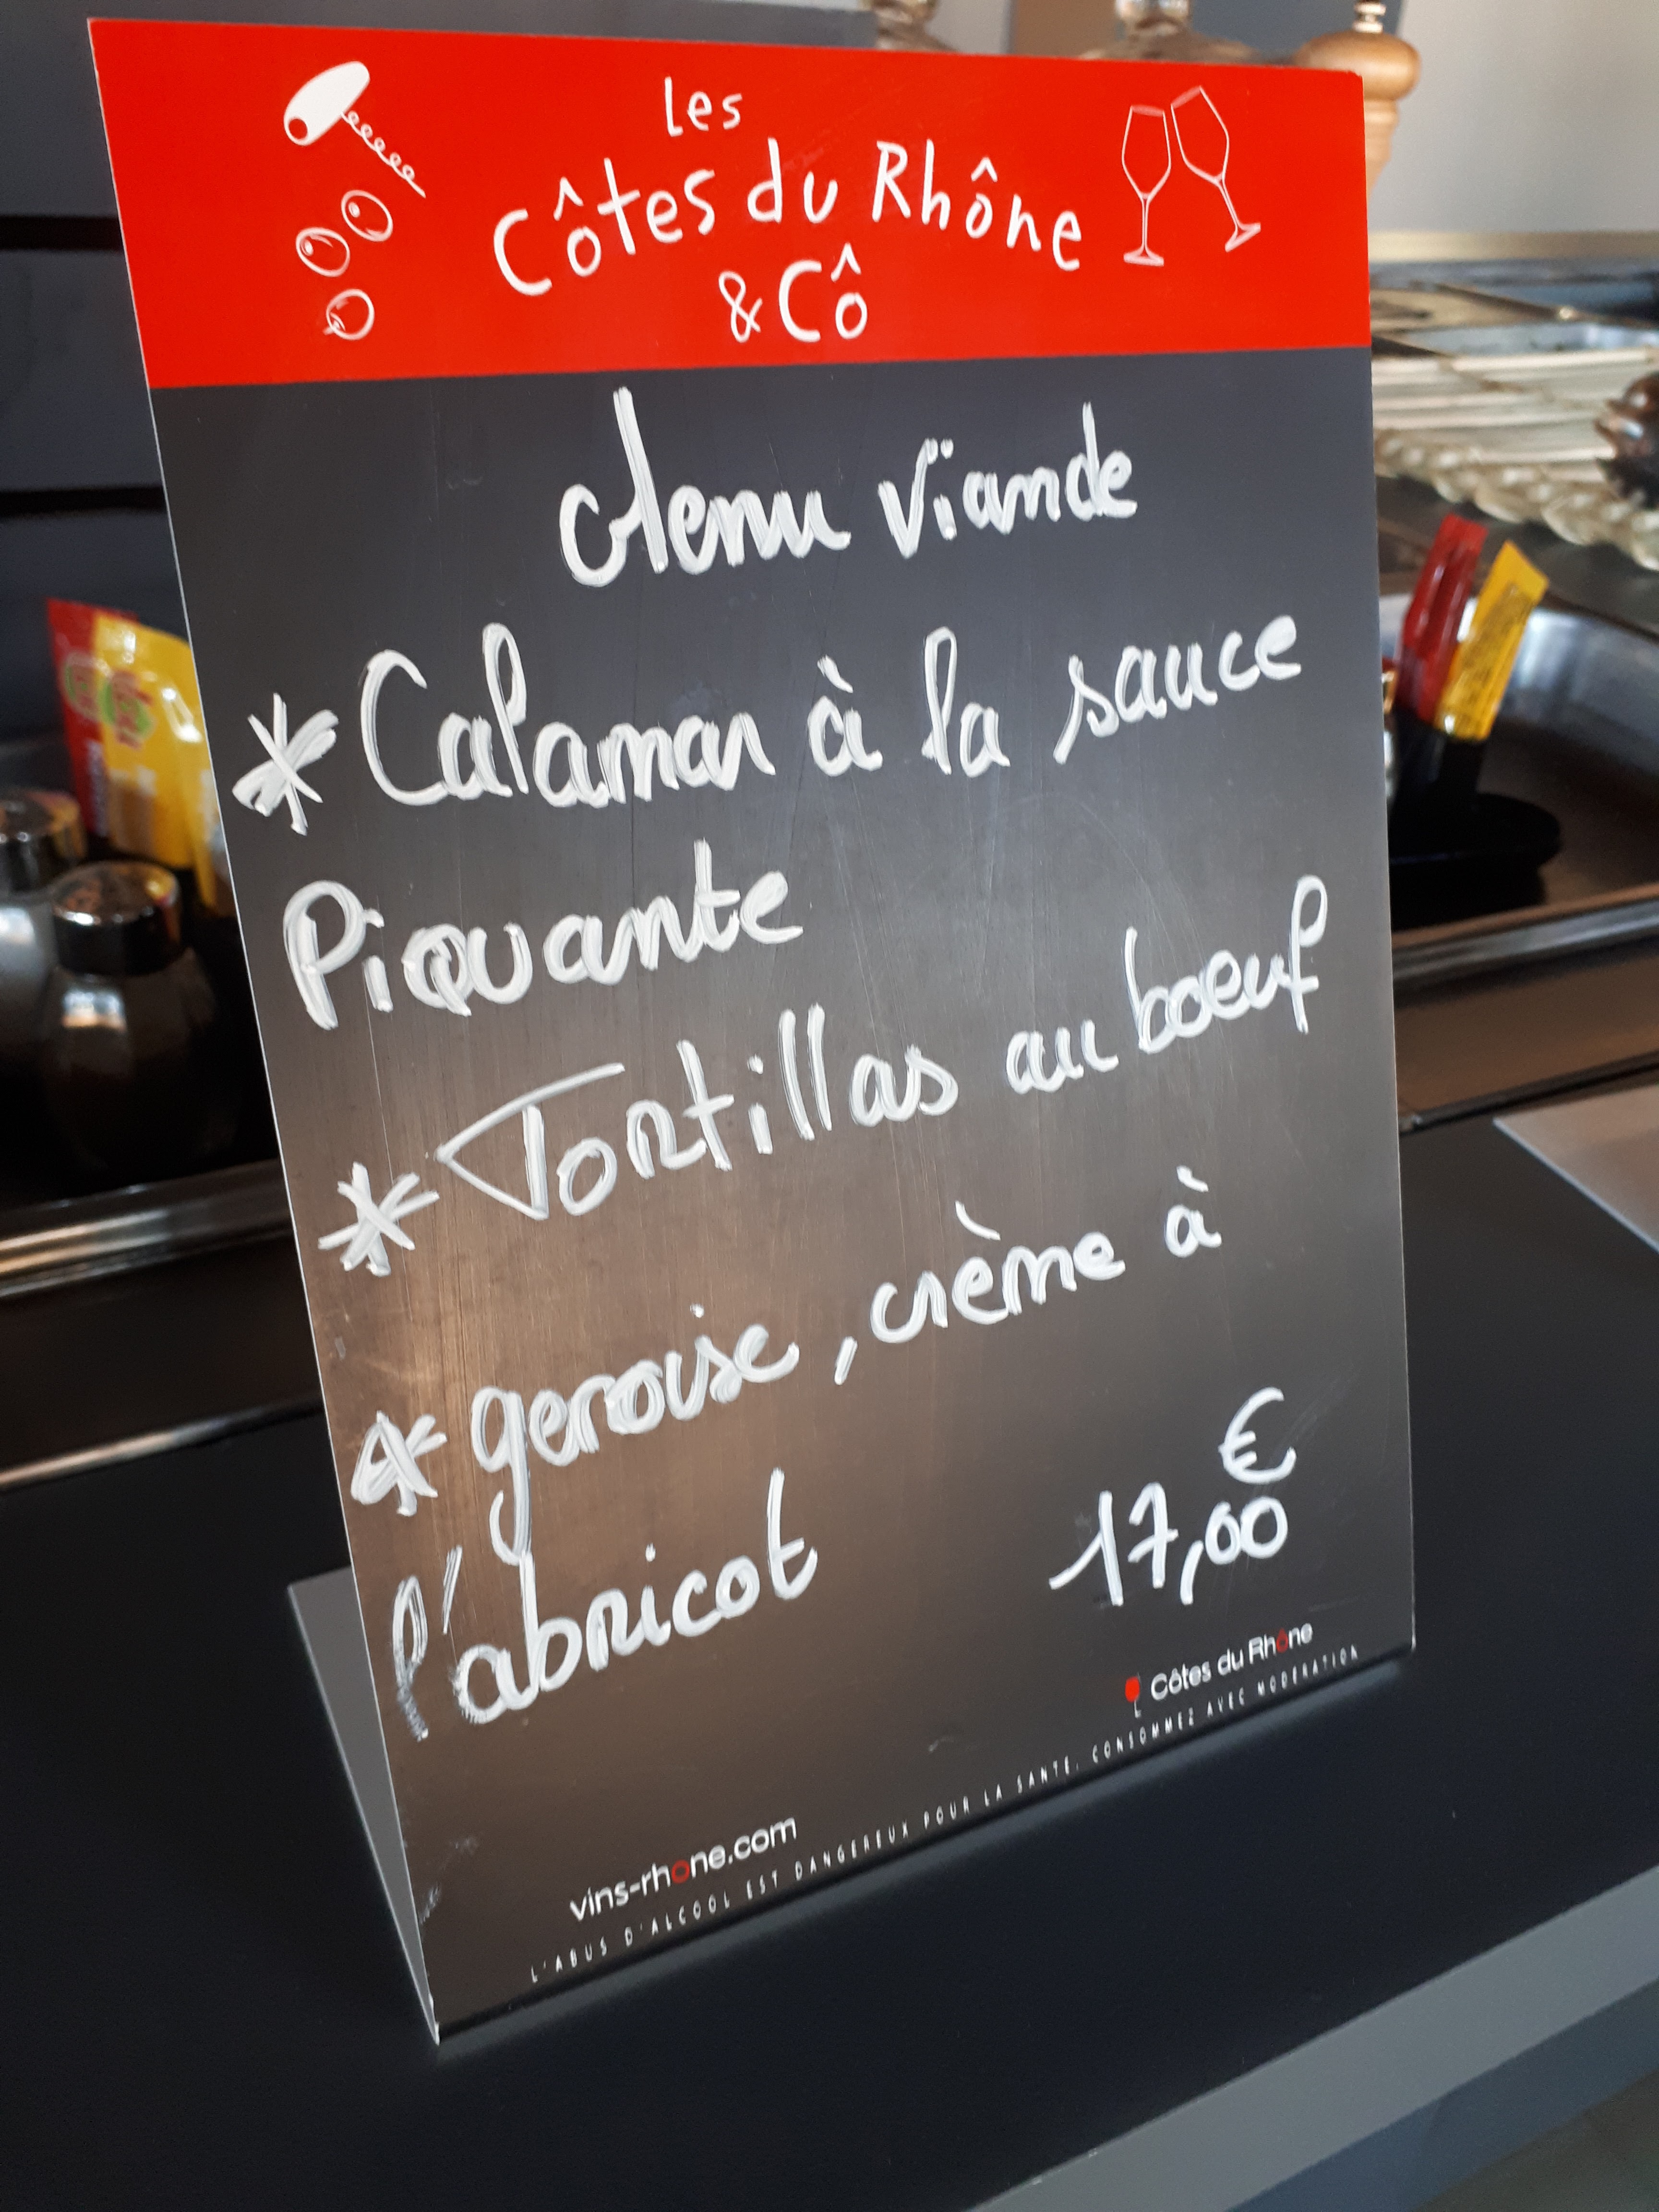 Les
Côtes du Rhône
& Cô
Menu Viande
* Calamar à la sauce
Piquante
* Tortillas au boeuf
* genoise, crème à
l'abricot
€
17,00
Côtes du Rhône
vins-rhone.com
L'ABUS D'ALCOOL EST DANGEREUX POUR LA SANTÉ. CONSOMMEZ AVEC MODÉRATION